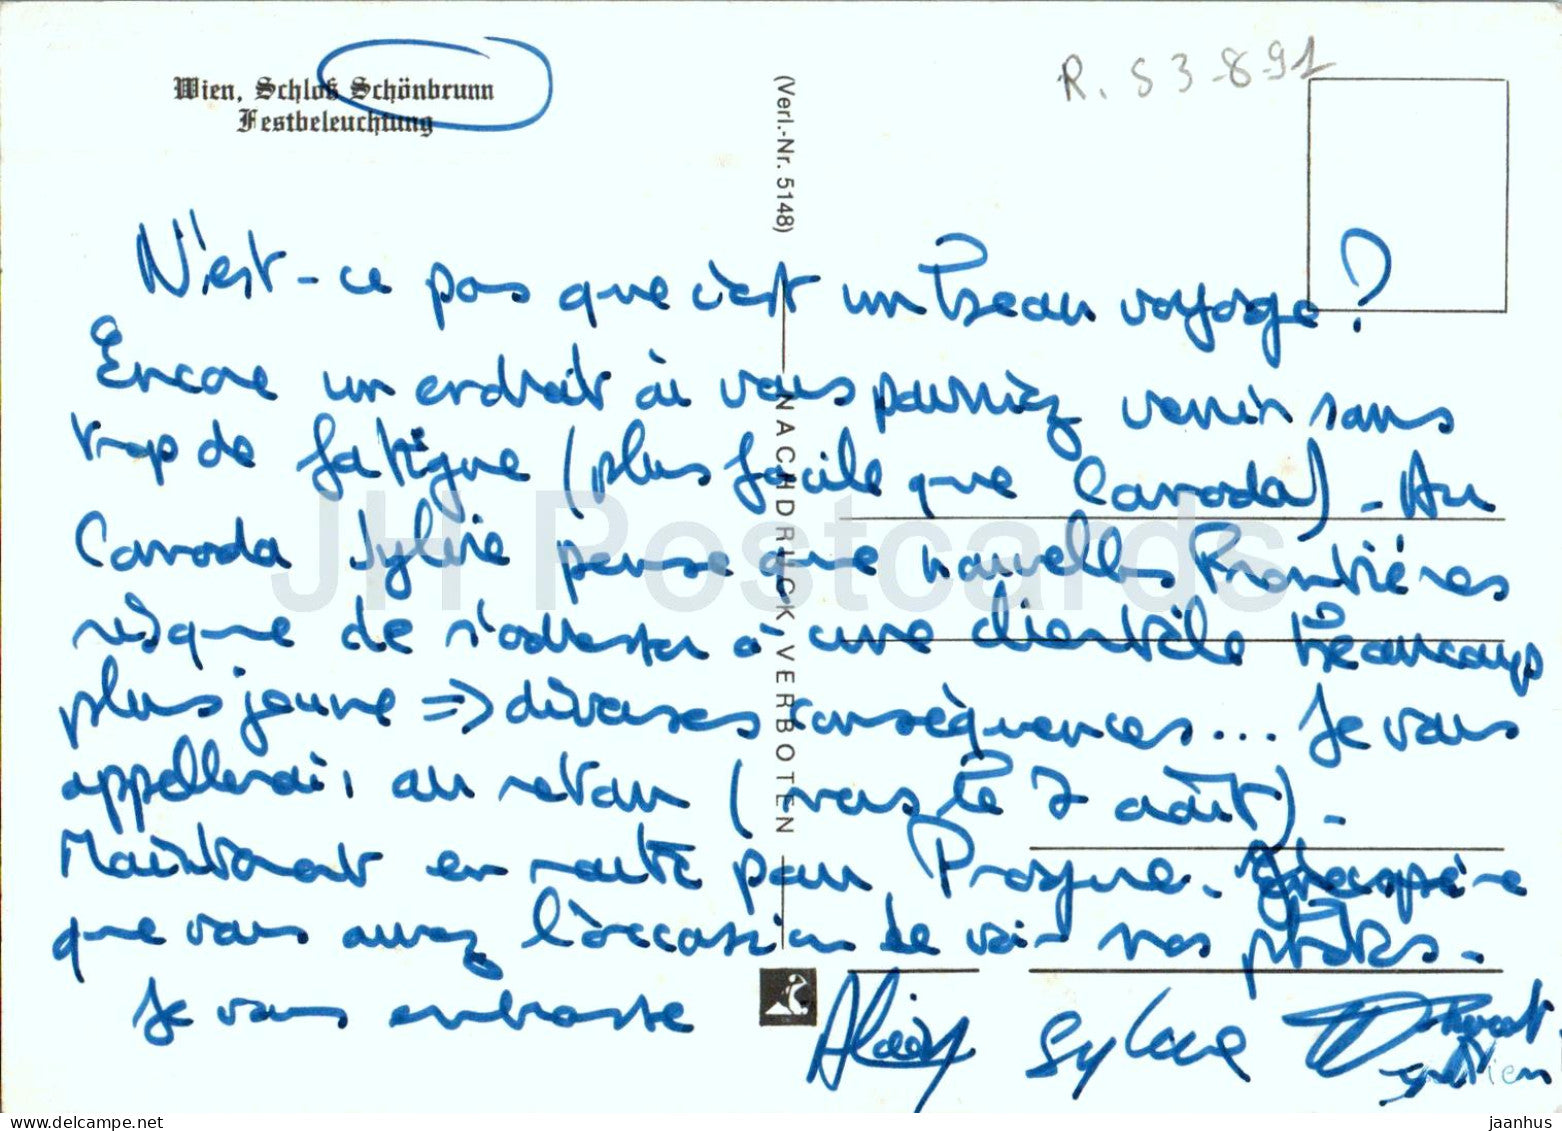 Wien, Schloß Schönbrunn
Festbeleuchtung
(Verl.-Nr. 5148)
R. S 3-8-91
N'est-ce pas que c'est un beau voyage ?
Encore un endroit où vous pourriez venir sans
trop de fatigue (plus facile que Canada) - Au
Canada Sylvie pense que nouvelles Frontières
risque de s'adresser à une clientèle beaucoup
plus jeune => diverses conséquences... Je vous
appellerai, au retour (vers le 7 août) -
Maintenant en route pour Prague. J'espère
que vous aurez l'occasion de voir nos photos.
Je vous embrasse
Alain Sylvie
NACHDRUCK VERBOTEN
JH Postcards
jaanhus